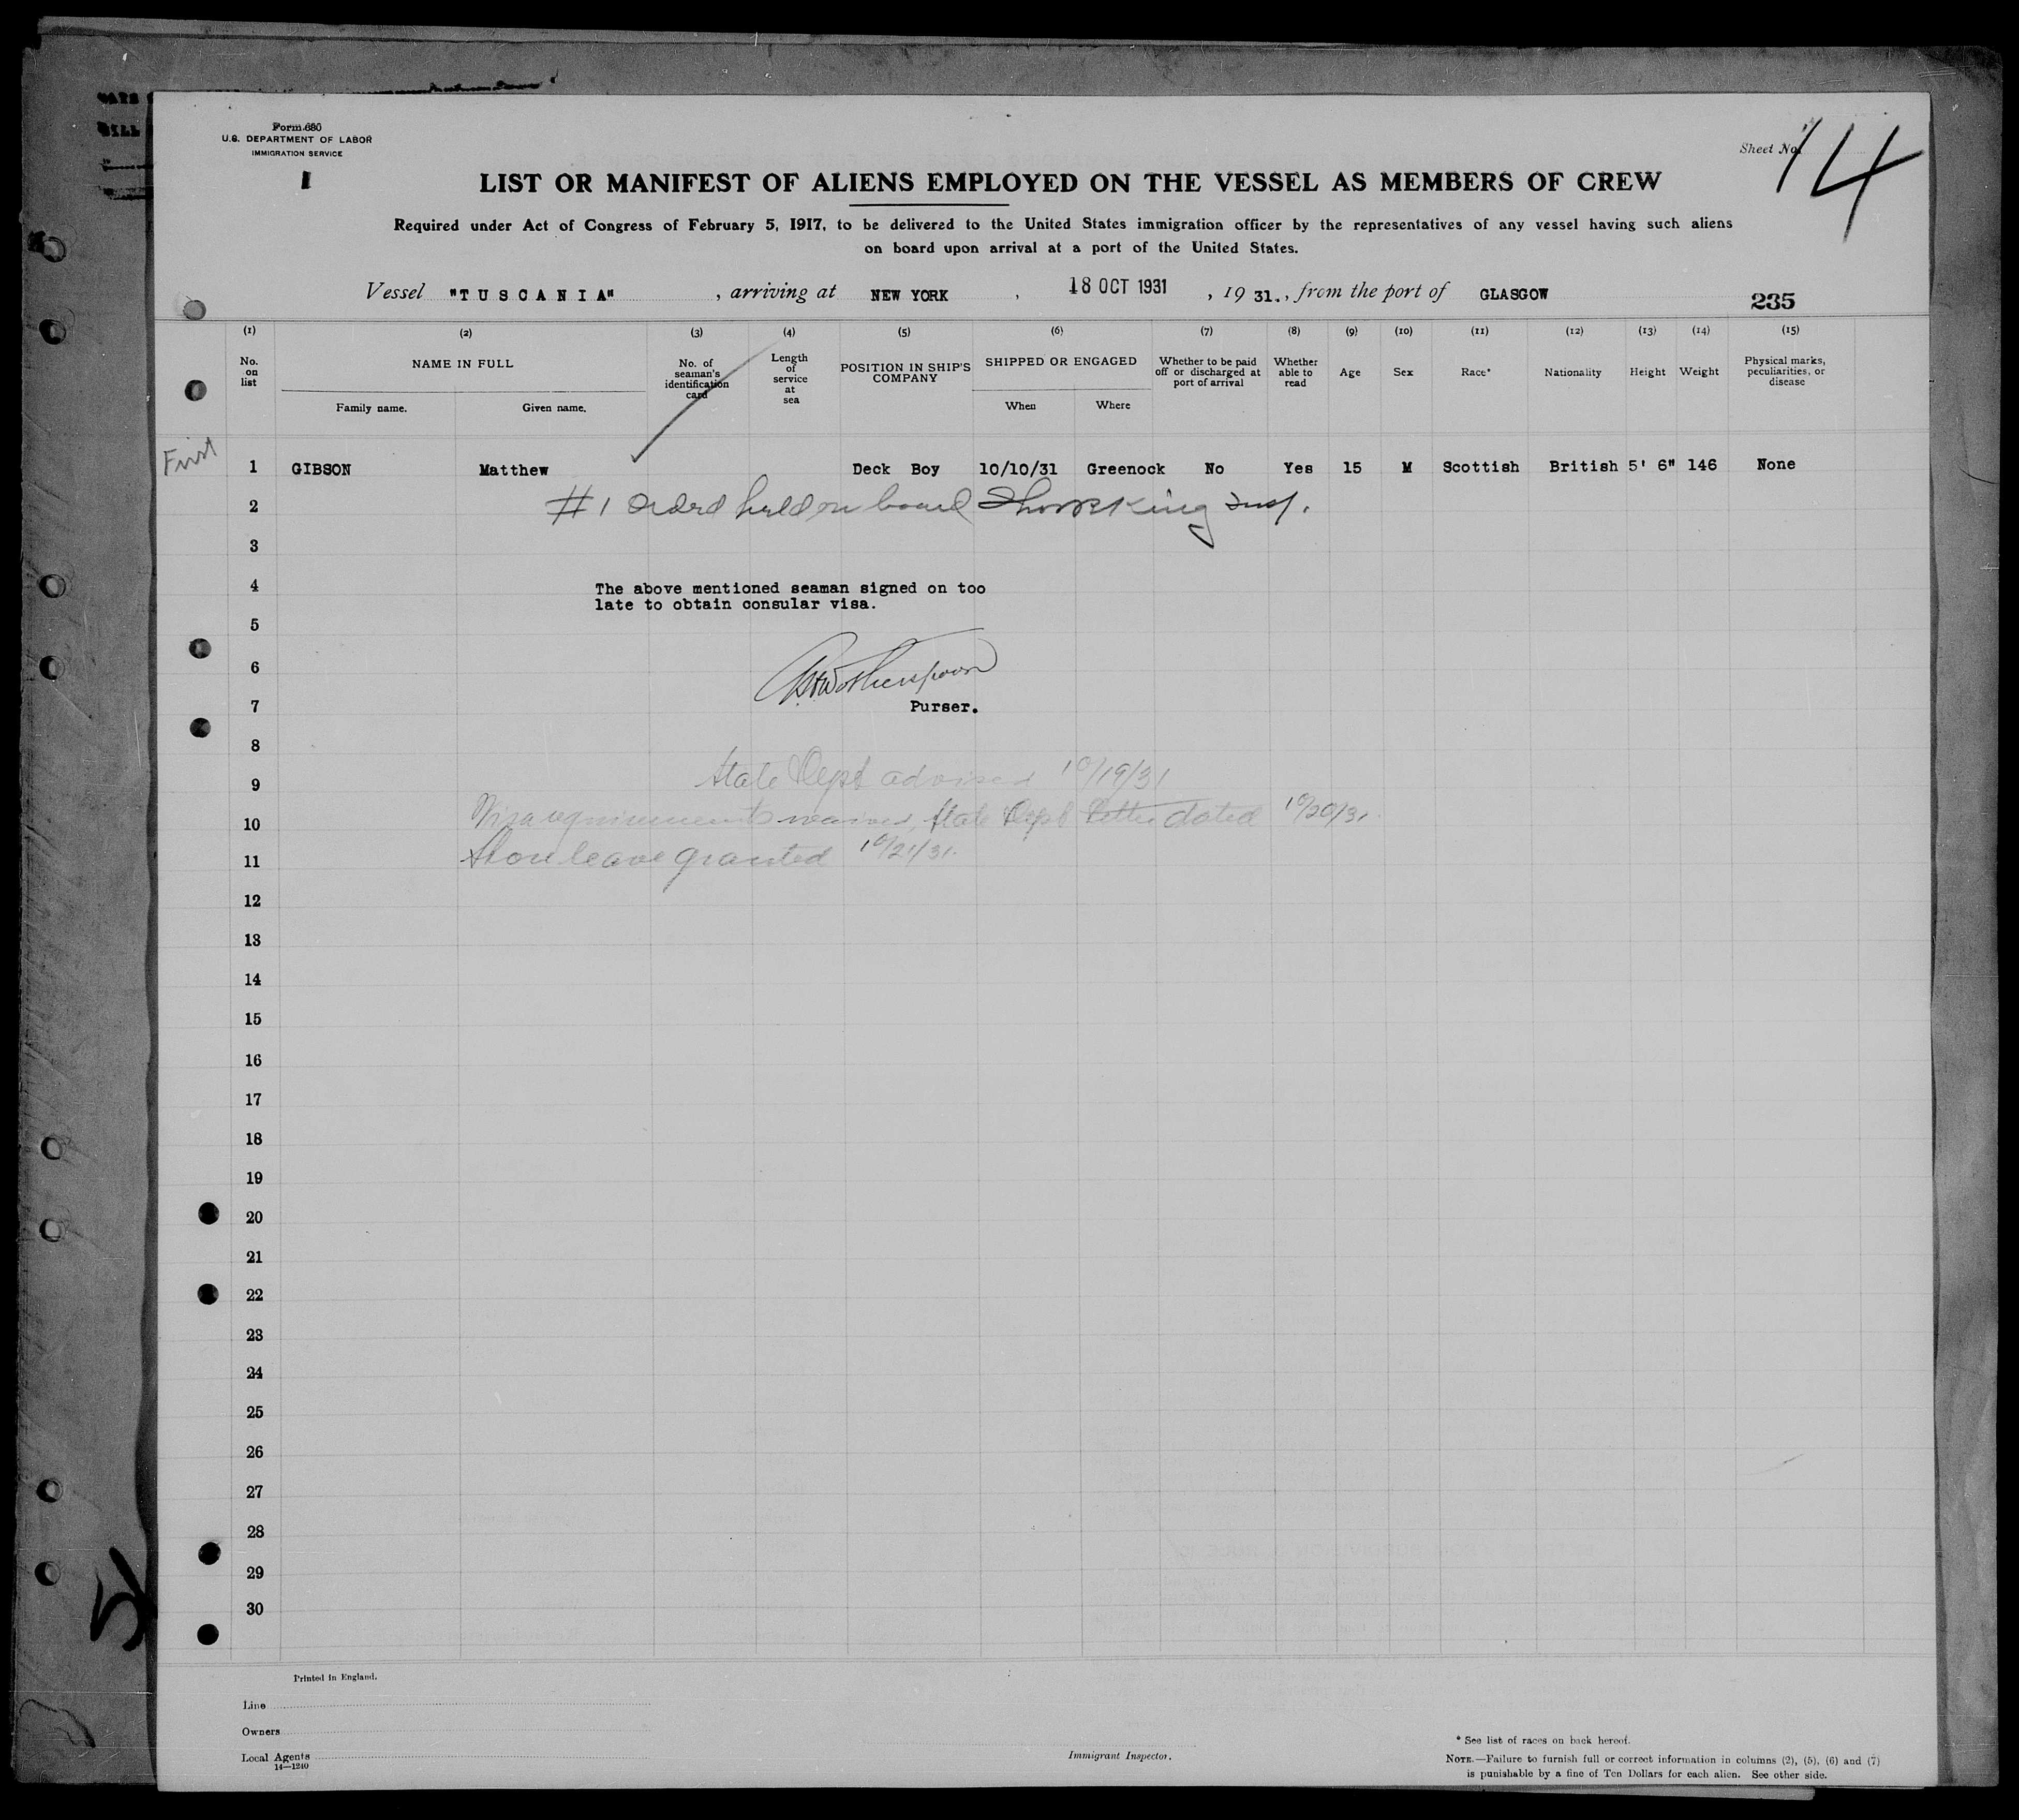 Form 680
U.S. DEPARTMENT OF LABOR
IMMIGRATION SERVICE
Sheet No. 14
LIST OR MANIFEST OF ALIENS EMPLOYED ON THE VESSEL AS MEMBERS OF CREW
Required under Act of Congress of February 5, 1917, to be delivered to the United States immigration officer by the representatives of any vessel having such aliens
on board upon arrival at a port of the United States.
Vessel "TUSCANIA", arriving at NEW YORK, 18 OCT 1931, 19 31., from the port of GLASGOW
235
(1) (2) (3) (4) (5) (6) (7) (8) (9) (10) (11) (12) (13) (14) (15)
No. on list NAME IN FULL Family name. Given name. No. of seaman's identification card Length of service at sea POSITION IN SHIP'S COMPANY SHIPPED OR ENGAGED When Where Whether to be paid off or discharged at port of arrival Whether able to read Age Sex Race* Nationality Height Weight Physical marks, peculiarities, or disease
First 1 GIBSON Matthew Deck Boy 10/10/31 Greenock No Yes 15 M Scottish British 5' 6" 146 None
2 #1 Ordered held on board King Insp.
3
4 The above mentioned seaman signed on too
late to obtain consular visa.
5
6 Wotherspoon
7 Purser.
8
9 State Dept advised 10/19/31
10 Visa requirements waived, State Dept letter dated 10/20/31.
11 Shore leave granted 10/21/31.
12
13
14
15
16
17
18
19
20
21
22
23
24
25
26
27
28
29
30
5
Printed in England.
Line
Owners
Local Agents
14—1240
Immigrant Inspector.
* See list of races on back hereof.
NOTE.—Failure to furnish full or correct information in columns (2), (5), (6) and (7)
is punishable by a fine of Ten Dollars for each alien. See other side.